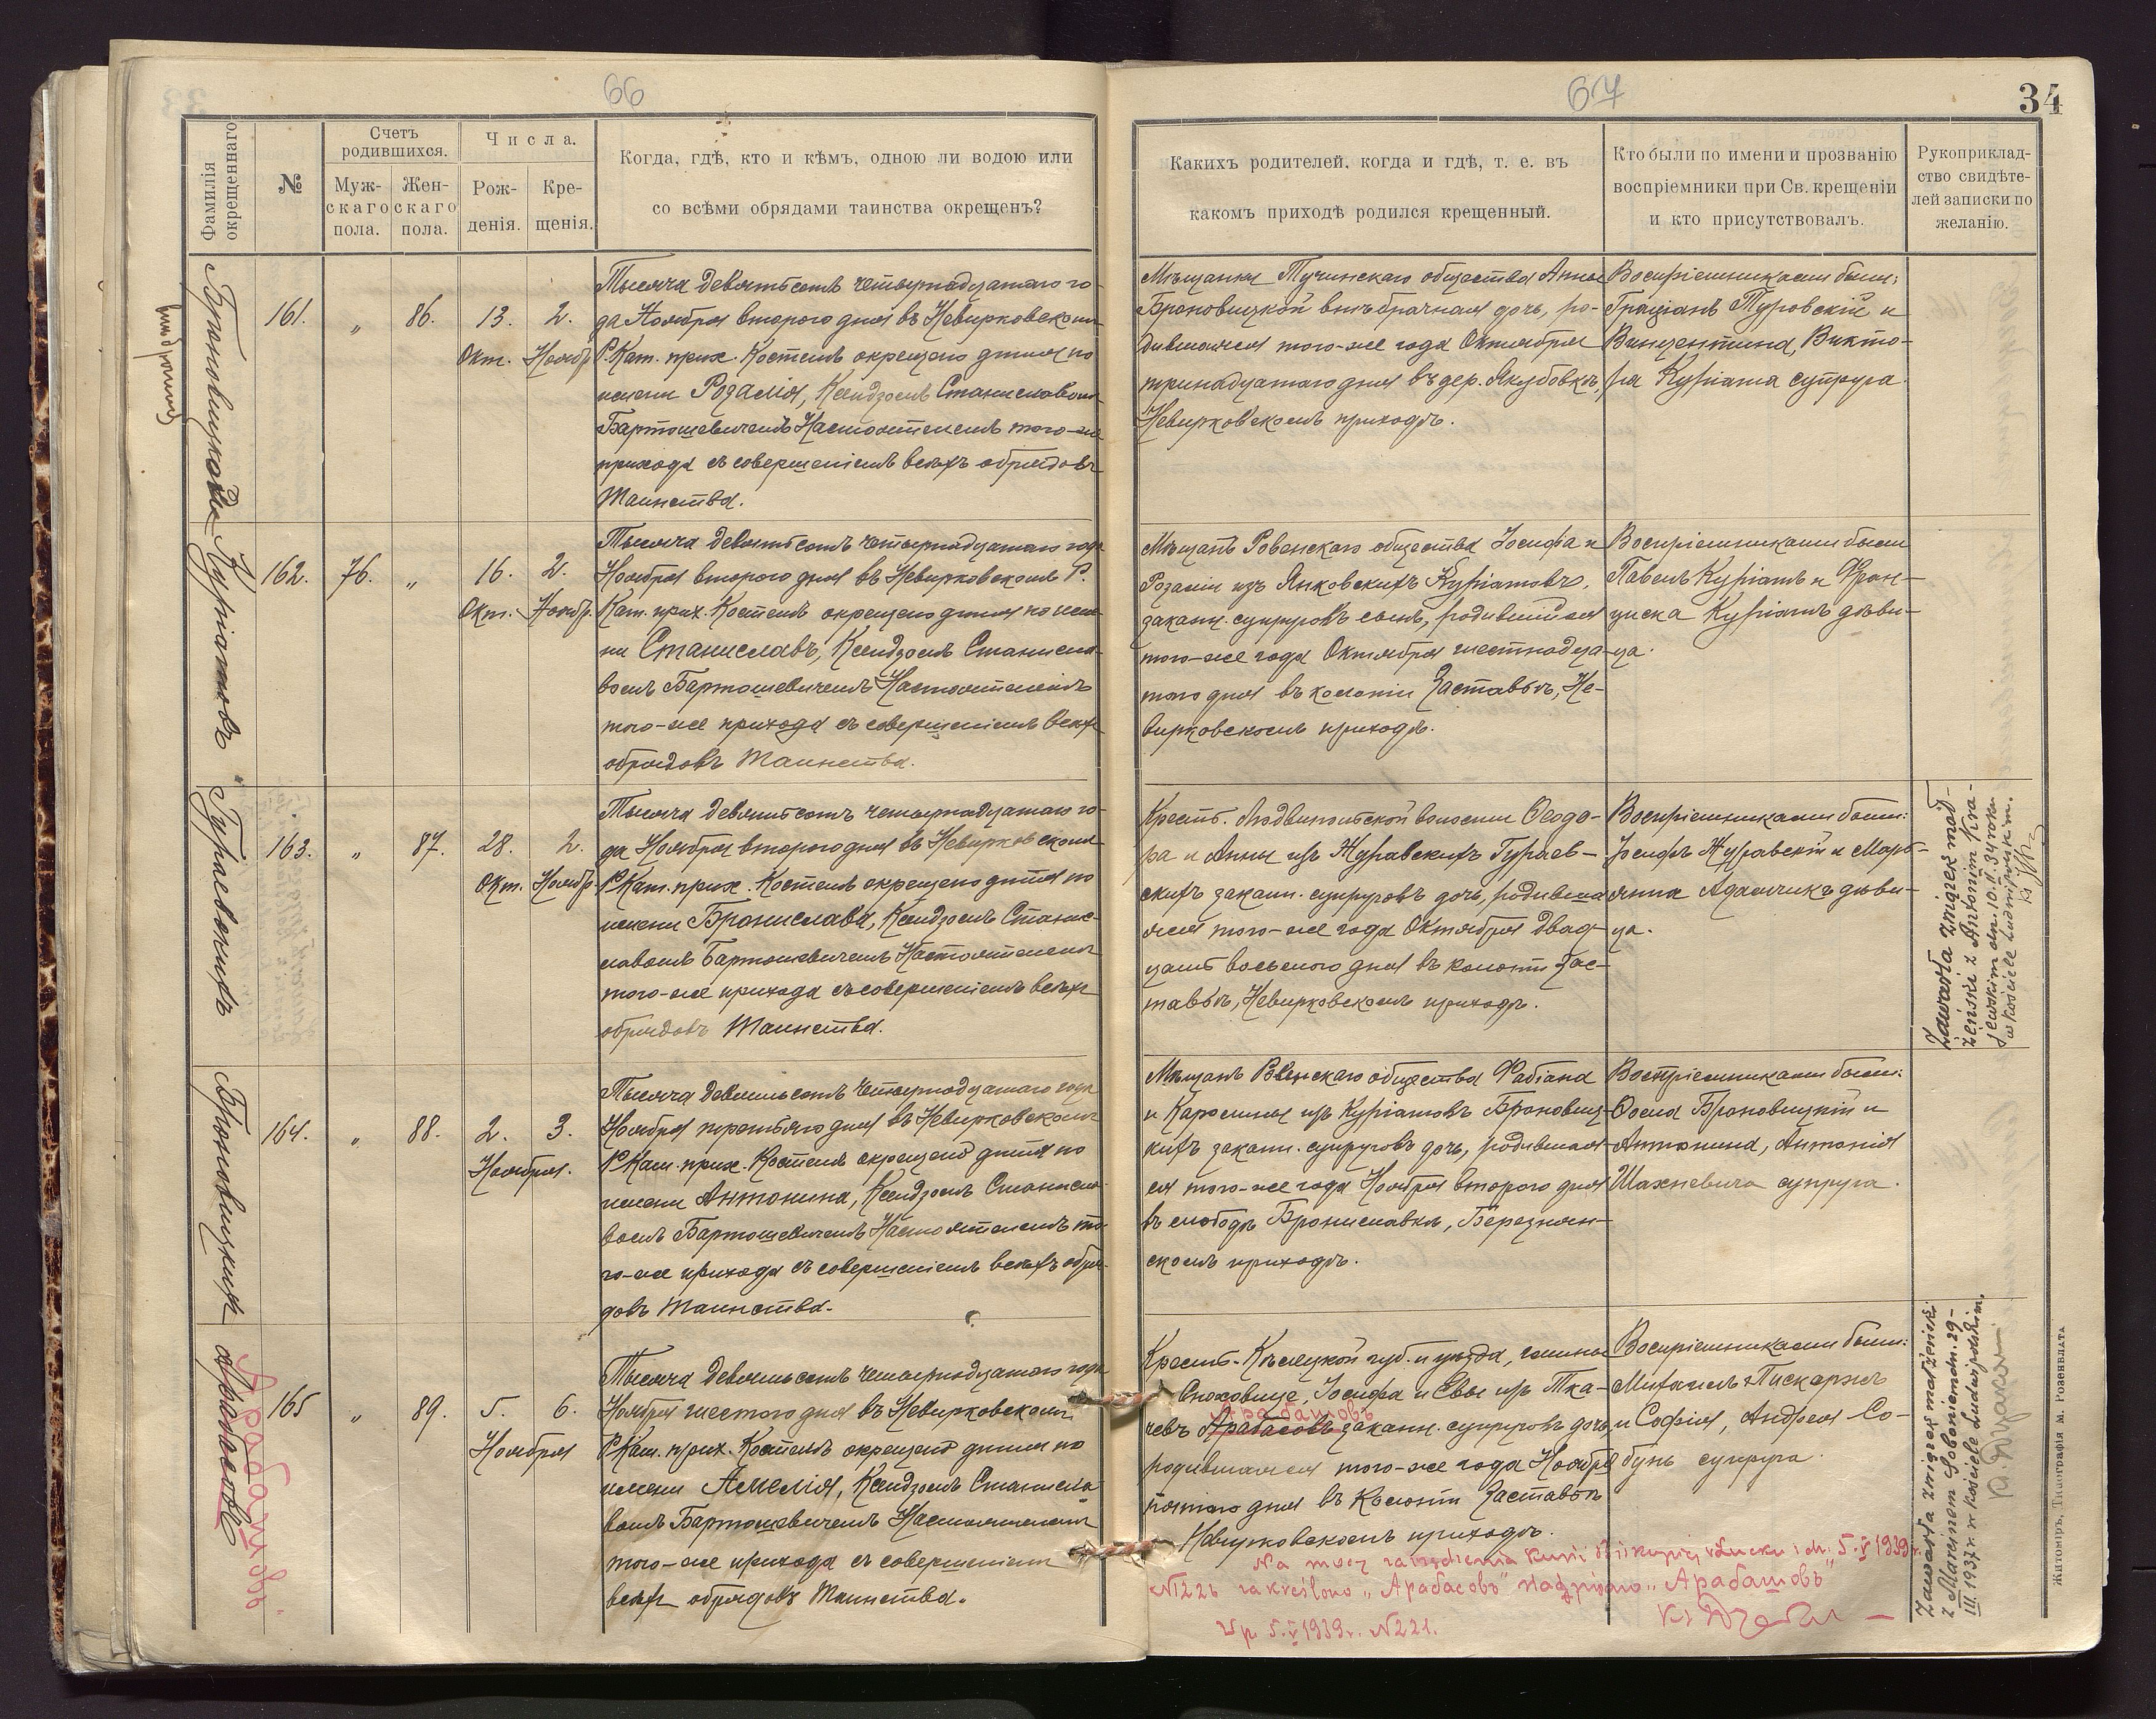 66
Фамилія
окрещеннаго
№
Счетъ
родившихся.
Муж-
скаго
пола.
Жен-
скаго
пола.
Числа.
Рож-
денія.
Кре-
щенія.
Когда, гдѣ, кто и кѣмъ, одною ли водою или
со всѣми обрядами таинства окрещенъ?
Броновицкая
161.
"
86.
13.
Окт.
2.
Ноябр.
Тысяча девятьсотъ четырнадцатаго го-
да Ноября второго дня въ Невирковскомъ
Р. Кат. прих. Костелѣ окрещено дитя по
имени Розалія, Ксендзомъ Станиславомъ
Бартошевичемъ Настоятелемъ того-же
прихода съ совершеніемъ всѣхъ обрядовъ
Таинства.
Куріатовъ
162.
76.
"
16.
Окт.
2.
Ноябр.
Тысяча девятьсотъ четырнадцатаго года
Ноября второго дня въ Невирковскомъ Р.
Кат. прих. Костелѣ окрещено дитя по име-
ни Станиславъ, Ксендзомъ Станисла-
вомъ Бартошевичемъ Настоятелемъ
того-же прихода съ совершеніемъ всѣхъ
обрядовъ Таинства.
Гураевскихъ
163.
"
87.
28.
Окт.
2.
Ноябр.
Тысяча девятьсотъ четырнадцатаго го-
да Ноября второго дня въ Невирковскомъ
Р. Кат. прих. Костелѣ окрещено дитя по
имени Бронислава, Ксендзомъ Станис-
лавомъ Бартошевичемъ Настоятелемъ
того-же прихода съ совершеніемъ всѣхъ
обрядовъ Таинства.
Броновицкихъ
164.
"
88.
2.
3.
Ноября.
Тысяча девятьсотъ четырнадцатаго года
Ноября третьяго дня въ Невирковскомъ
Р. Кат. прих. Костелѣ окрещено дитя по
имени Антонина, Ксендзомъ Станисла-
вомъ Бартошевичемъ Настоятелемъ то-
го-же прихода съ совершеніемъ всѣхъ обря-
довъ Таинства.
Арабасовъ
Арабашовъ
165
"
89.
5.
6.
Ноября
Тысяча девятьсотъ четырнадцатаго года
Ноября шестого дня въ Невирковскомъ
Р. Кат. прих. Костелѣ окрещено дитя по
имени Амелія, Ксендзомъ Станисла-
вомъ Бартошевичемъ Настоятелемъ
того-же прихода съ совершеніемъ
всѣхъ обрядовъ Таинства.
67
34
Какихъ родителей, когда и гдѣ, т. е. въ
какомъ приходѣ родился крещенный.
Кто были по имени и прозванію
воспріемники при Св. крещеніи
и кто присутствовалъ.
Рукоприклад-
ство свидѣте-
лей записки по
желанію.
Мѣщанки Тучинскаго общества Анны
Броновицкой внѣбрачная дочь, ро-
дившаяся того-же года Октября
тринадцатаго дня въ дер. Якубовкѣ,
Невирковскомъ приходѣ.
Воспріемниками были:
Граціанъ Туровскій и
Винцентина, Викто-
ра Куріата супруга.
Мѣщанъ Ровенскаго общества Іосифа и
Розаліи изъ Янковскихъ Куріатовъ,
законн. супруговъ сынъ, родившійся
того-же года Октября шестнадца-
таго дня въ колоніи Заставье, Не-
вирковскомъ приходѣ.
Воспріемниками были
Павелъ Куріатъ и Фран-
циска Куріатъ дѣви-
ца.
Крест. Людвипольской волости Ѳеодо-
ра и Анны изъ Журавскихъ Гураев-
скихъ законн. супруговъ дочь, родивша-
яся того-же года Октября двад-
цать восьмого дня въ колоніи Зас-
тавье, Невирковскомъ приходѣ.
Воспріемниками были:
Іосифъ Журавскій и Марі-
янна Адамчикъ дѣви-
ца.
Zawarła związek mał-
żeński z Antonim Kra-
jewskim dn. 10.II.34 roku
w kościele Ludwipolskim.
Мѣщанъ Ровенскаго общества Фабіана
и Каролины изъ Куріатовъ Броновиц-
кихъ законн. супруговъ дочь, родившая-
ся того-же года Ноября второго дня
въ слободѣ Брониславкѣ, Березнян-
скомъ приходѣ.
Воспріемниками были:
Ѳома Броновицкій и
Антонина, Антонія
Шахневича супруга.
Крест. Кѣлецкой губ. и уѣзда, гмины
Снохowице, Іосифа и Евы изъ Тка-
Арабашовъ
чевъ Арабасовъ законн. супруговъ дочь
родившаяся того-же года Ноября
пятаго дня въ Колоніи Заставье
Невирковскомъ приходѣ.
Воспріемниками были:
Михаилъ Пискоржъ
и Софія, Андрея Со-
бунь супруга.
Zawarła związek małżeński
z Marcinem Soboniem dn. 29-
III.1937 r. w kościele Ludwipolskim.
Na mocy zarządzenia Kurii Biskupiej w Łucku z dn. 5.V 1939 r.
N 122 zakreślono „Арабасовъ" nadpisano „Арабашовъ"
5.V 1939 r. N 221.
Житомiръ, Типографія М. Розенблата